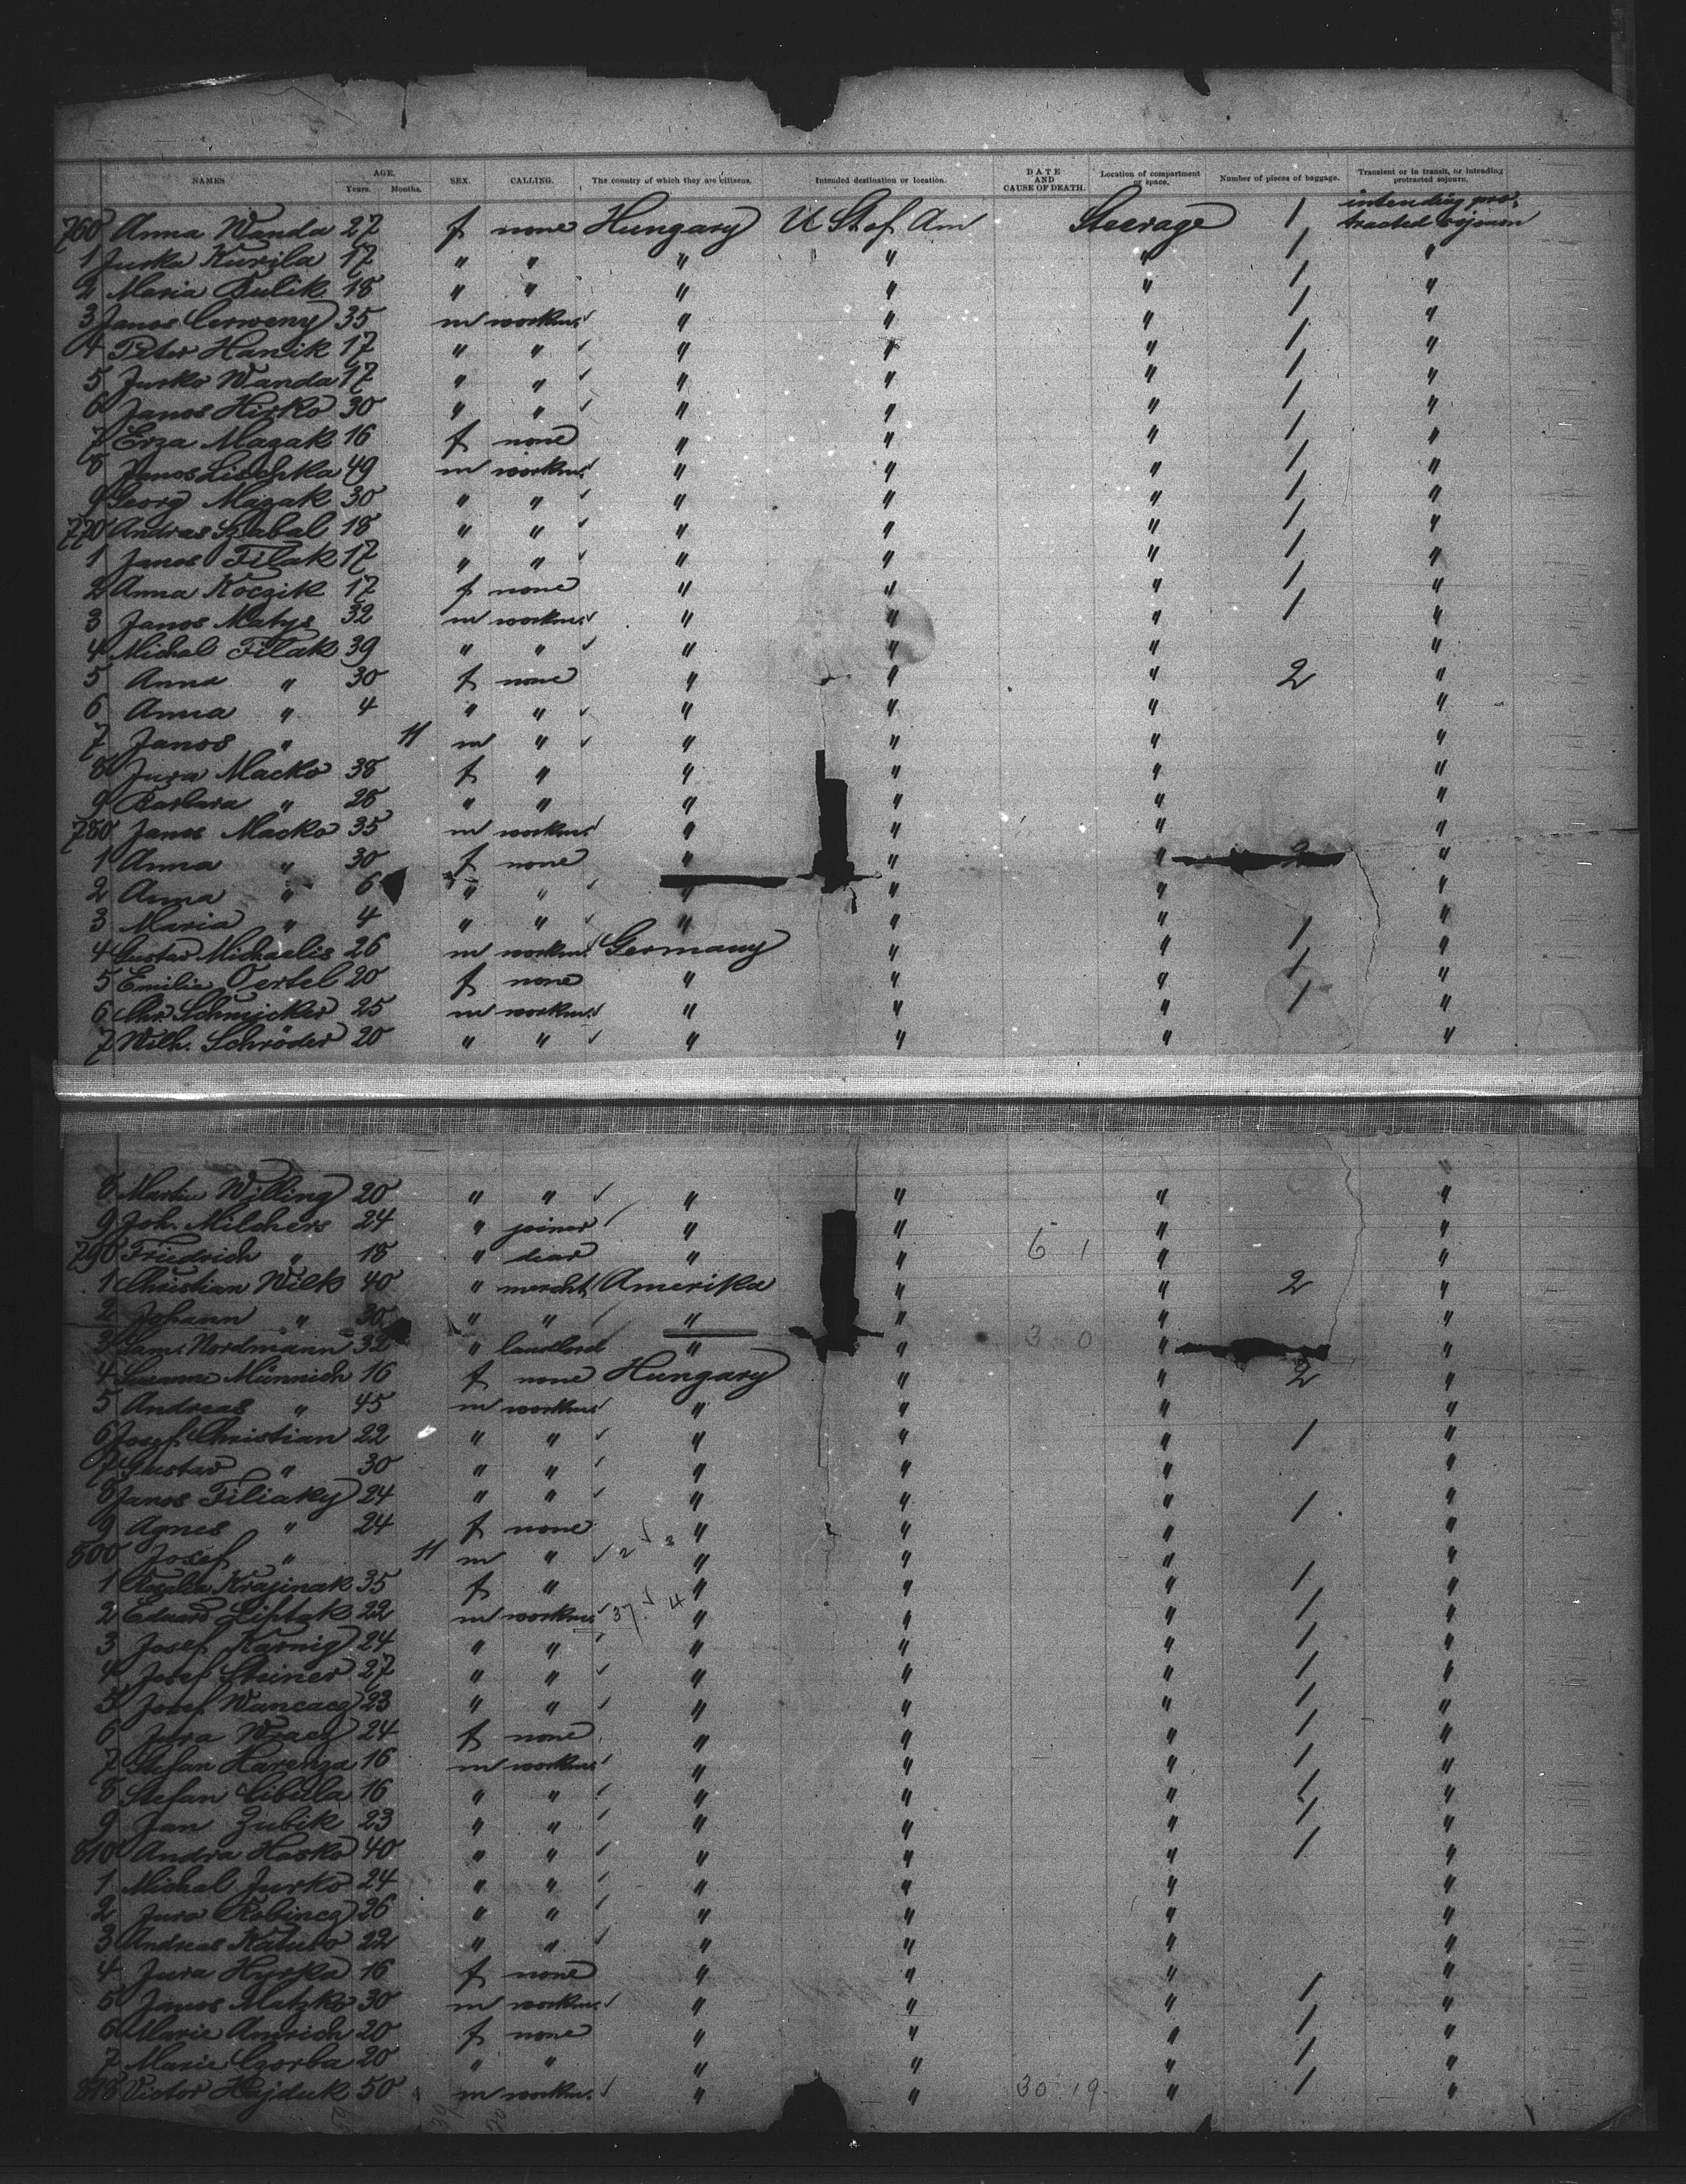 NAMES AGE. Years. Months. SEX. CALLING. The country of which they are citizens. Intended destination or location. DATE AND CAUSE OF DEATH. Location of compartment or space. Number of pieces of baggage. Transient or in transit, or intending protracted sojourn.
760 Anna Wanda 27 f none Hungary U St of Am Steerage 1 intending protracted sojourn
1 Jurko Kurila 17 " " " " " 1 "
2 Maria Bulik 18 " " " " " 1 "
3 Janos Cerweny 35 m workm. " " " 1 "
4 Peter Hanik 17 " " " " " 1 "
5 Jurko Wanda 17 " " " " " 1 "
6 Janos Hirko 30 " " " " " 1 "
7 Erza Mazak 16 f none " " " 1 "
8 Janos Lischka 49 m workm. " " " 1 "
9 Georg Mazak 30 " " " " " 1 "
770 Andras Szabal 18 " " " " " 1 "
1 Janos Filak 17 " " " " " 1 "
2 Anna Koczik 17 f none " " " 1 "
3 Janos Matys 32 m workm. " " " 1 "
4 Michal Filak 39 " " " " " "
5 Anna " 30 f none " " " 2 "
6 Anna " 4 " " " " " "
7 Janos " 11 m " " " " "
8 Jura Macko 38 f " " " " "
9 Barbara " 28 " " " " " "
780 Janos Macko 35 m workm. " " " "
1 Anna " 30 f none " " " 2 "
2 Anna " 6 " " " " " "
3 Maria " 4 " " " " " "
4 Gustav Michaelis 26 m workm. Germany " " 1 "
5 Emilie Oertel 20 f none " " " 1 "
6 Chr. Schnijcker 25 m workm. " " " 1 "
7 Wilh. Schröder 20 " " " " " "
8 Martin Willing 20 " " " " " "
9 Joh. Milchers 24 " joiner " " " "
790 Friedrich " 18 " " " 6 1 " "
1 Christian Wilk 40 " mercht Amerika " " 2 "
2 Johann " 30 " " " " " "
3 Sam. Nordmann 32 " landlord " " 3 0 " "
4 Susanne Münnich 16 f none Hungary " " 2 "
5 Andreas " 45 m workm. " " " "
6 Josef Christian 22 " " " " " 1 "
7 Gustav " 30 " " " " " "
8 Janos Filiaky 24 " " " " " 1 "
9 Agnes " 24 f none " " " "
800 Josef " 11 m " 2 3 " " " "
1 Rozalia Krajinak 35 f " " " " 1 "
2 Eduard Liptak 22 m workm. 37 4 " " " 1 "
3 Josef Karnig 24 " " " " " 1 "
4 Josef Steiner 27 " " " " " 1 "
5 Josef Wancacz 23 " " " " " 1 "
6 Jura Wracz 24 f none " " " 1 "
7 Stefan Harenza 16 m workm. " " " 1 "
8 Stefan Cibula 16 " " " " " 1 "
9 Jan Zubik 23 " " " " " 1 "
810 Andra Hasko 40 " " " " " 1 "
1 Michal Jurko 24 " " " " " "
2 Juro Robincz 26 " " " " " "
3 Andreas 22 " " " " " "
4 Jura Hyrka 16 f none " " " "
5 Janos Matzko 30 m workm. " " " 1 "
6 Marie Amrich 20 f none " " " 1 "
7 Marie Czorba 20 " " " " " 1 "
818 Victor Hajduk 50 m workm. " " 30 19 " 1 "